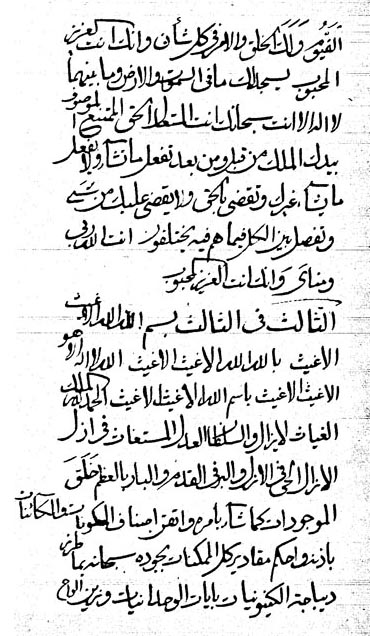 القيوم ولك الخلق والامر في كل شأن وانك انت العزيز
المحبوب يسجد لك ما في السموات والارض وما بينهما
لا اله الا انت سبحانك انت السلطان الحق الممتنع الموصوف
بيدك الملك من قبل ومن بعد تفعل ما تشاء ولا يفعل
ما يشاء غيرك وتقضي بالحق ولا يقضى عليك من شيء
وتفصل بين الكل فيما هم فيه يختلفون انت الله ربي
وانك انت العزيز المحبوب
الثالث في الثالث بسم الله الاغيث
الاغيث بالله الله الاغيث الاغيث الله لا اله الا هو
الاغيث الاغيث باسم الله الاغيث الاغيث الحمد لله الملك
الغياث لا يزال والسلطان العدل المستغاث في ازل
الازال الحي في الازل والبر في القدم والبار بالعظم خلق
الموجودات كما شاء بامره واتقن اصناف الكونيات والمكانات
باذنه واحكم مقادير كل الممكنات بجوده سبحانه ما طرز
ديباجة الكينونيات بايات الوحدانيات وزين